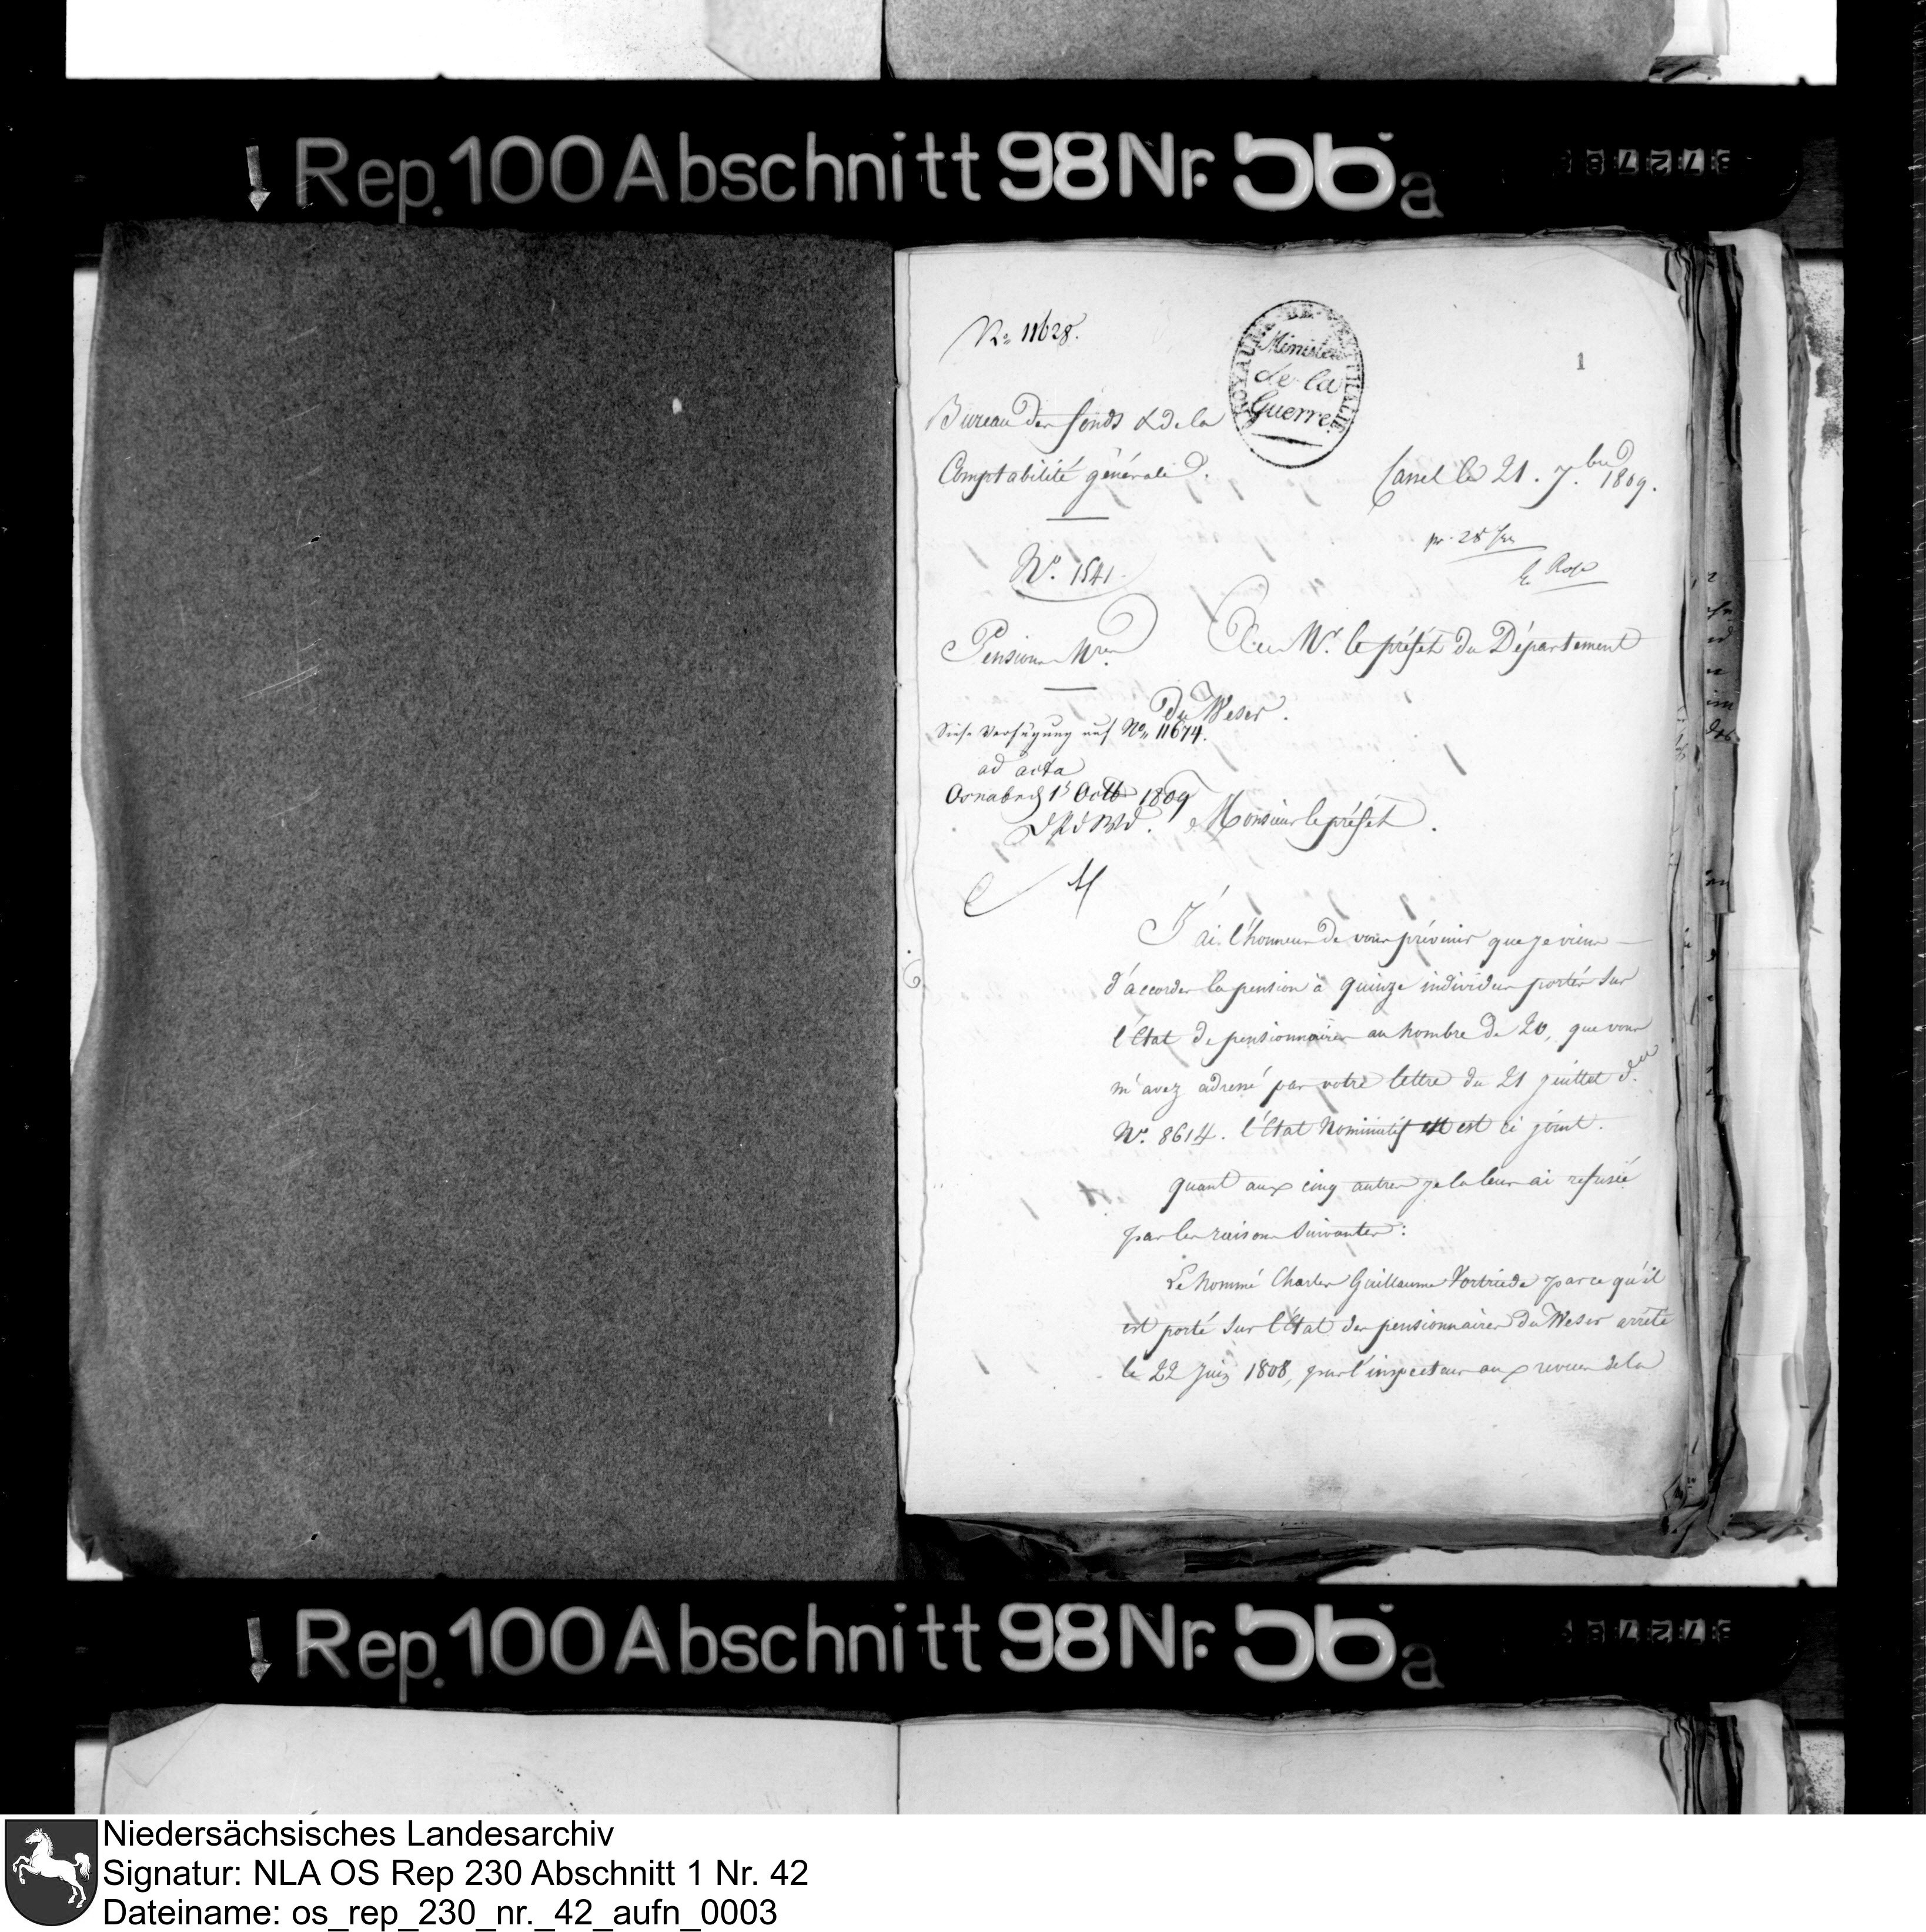 Rep. 100 Abschnitt 98 Nr. 56a
37278
No. 11628.
ROYAUME DE WESTPHALIE
Ministère
de la
Guerre
1
Bureau des fonds & de la
Comptabilité générale.
Cassel le 21. 7.bre 1809.
pr. 28
No. 1541.
Pensions Mres
A Mr. le préfet du Département
du Weser.
Diese Verfügung auf No. 11674.
ad acta
Osnabrück 1t Octb 1809
Monsieur le préfet.
J'ai l'honneur de vous prévenir que je viens
d'accorder la pension à quinze individus portés sur
l'Etat de pensionnaires au nombre de 20, que vous
m'avez adressé par votre lettre du 21 juillet der
No. 8614. l'Etat Nominatif est est ci joint.
quant aux cinq autres je la leur ai refusée
par les raisons suivantes:
Le nommé Charles Guillaume Vortriede parce qu'il
est porté sur l'Etat des pensionnaires du Weser arrêté
le 22 juin 1808, par l'inspecteur aux revues de la
Rep. 100 Abschnitt 98 Nr. 56a
37278
Niedersächsisches Landesarchiv
Signatur: NLA OS Rep 230 Abschnitt 1 Nr. 42
Dateiname: os_rep_230_nr._42_aufn_0003